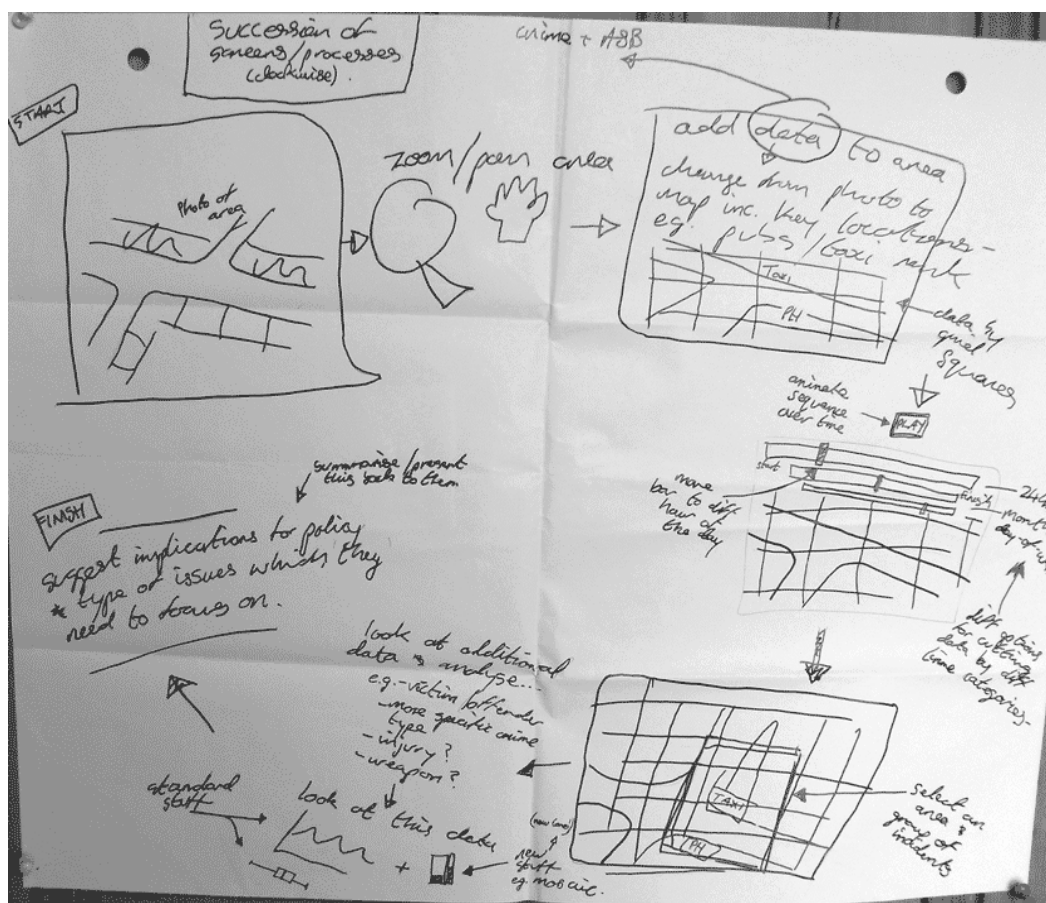 Succession of
screens/processes
(clockwise).
START
Photo of
area
zoom/pan area
crime + ASB
add data to area
change from photo to
map inc. key locations -
e.g. pubs/taxi rank
Taxi
PH
data by
grid
squares
animate
sequence
over time
PLAY
start
finish
24hr
month
day of
move
bar to diff
hour of
the day
diff options
for cutting
data by diff
time categories-
TAXI
PH
select an
area &
group of
incidents
look at additional
data & analyse...
e.g. - victim/offender
- more specific crime
type
- injury?
- weapon?
look at this data
standard
stuff
+
new
stuff
eg. mosaic.
summarise/present
this back to them
FINISH
suggest implications for policy
* type of issues which they
need to focus on.